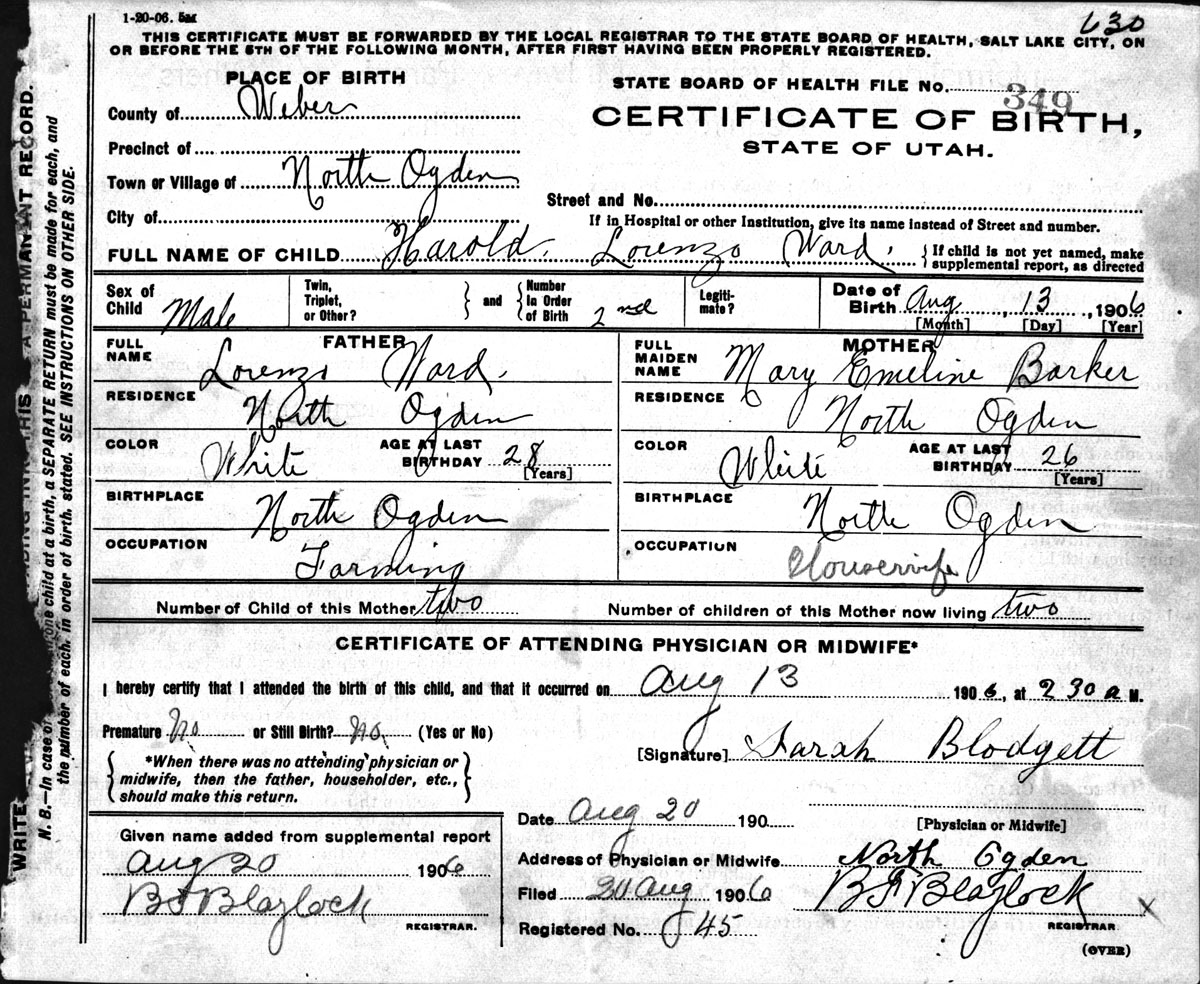 1-20-06. 5M
630
THIS CERTIFICATE MUST BE FORWARDED BY THE LOCAL REGISTRAR TO THE STATE BOARD OF HEALTH, SALT LAKE CITY, ON
OR BEFORE THE 5TH OF THE FOLLOWING MONTH, AFTER FIRST HAVING BEEN PROPERLY REGISTERED.
PLACE OF BIRTH
STATE BOARD OF HEALTH FILE NO. 349
County of Weber
CERTIFICATE OF BIRTH,
Precinct of
STATE OF UTAH.
Town or Village of North Ogden
Street and No.
City of
If in Hospital or other Institution, give its name instead of Street and number.
FULL NAME OF CHILD Harold. Lorenzo Ward. {If child is not yet named, make
supplemental report, as directed
Sex of Child Male
Twin, Triplet, or Other? } and { Number In Order of Birth 2nd
Legiti-mate?
Date of Birth Aug, 13, 1906
[Month] [Day] [Year]
FATHER
FULL NAME Lorenzo Ward.
RESIDENCE North Ogden
COLOR White AGE AT LAST BIRTHDAY 28 [Years]
BIRTHPLACE North Ogden
OCCUPATION Farming
MOTHER
FULL MAIDEN NAME Mary Emeline Barker
RESIDENCE North Ogden
COLOR White AGE AT LAST BIRTHDAY 26 [Years]
BIRTHPLACE North Ogden
OCCUPATION Housewife
Number of Child of this Mother two Number of children of this Mother now living two
CERTIFICATE OF ATTENDING PHYSICIAN OR MIDWIFE*
I hereby certify that I attended the birth of this child, and that it occurred on Aug 13 1906, at 2 30 a M.
Premature No or Still Birth? No. (Yes or No)
[Signature] Sarah Blodgett
{ *When there was no attending physician or
midwife, then the father, householder, etc.,
should make this return. }
Date Aug 20 190
[Physician or Midwife]
Given name added from supplemental report
Aug 20 1906
B F Blaylock
REGISTRAR.
Address of Physician or Midwife North Ogden
Filed 30 Aug 1906 B F Blaylock x
Registered No. 45
REGISTRAR
(OVER)
WRITE THIS A PERMANENT RECORD.
N. B.—In case of one child at a birth, a SEPARATE RETURN must be made for each, and
the number of each, in order of birth, stated. SEE INSTRUCTIONS ON OTHER SIDE.